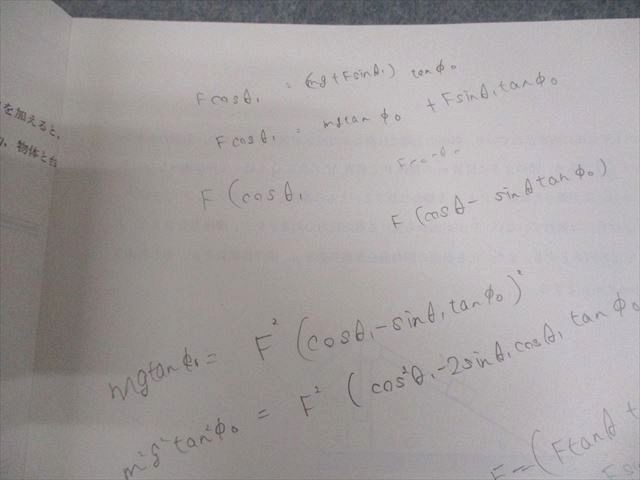 を加えると,
物体と台
F cosθ₁ = (mg + F sinθ₁) tanφ₀
F cosθ₁ = mg tanφ₀ + F sinθ₁ tanφ₀
F (cosθ₁
F (cosθ - sinθ tanφ₀)
mg tanφ₁ = F² (cosθ₁ - sinθ₁ tanφ₀)²
m²g² tan²φ₀ = F² (cos²θ₁ - 2 sinθ₁ cosθ₁ tanφ₀
F = (F tanθ